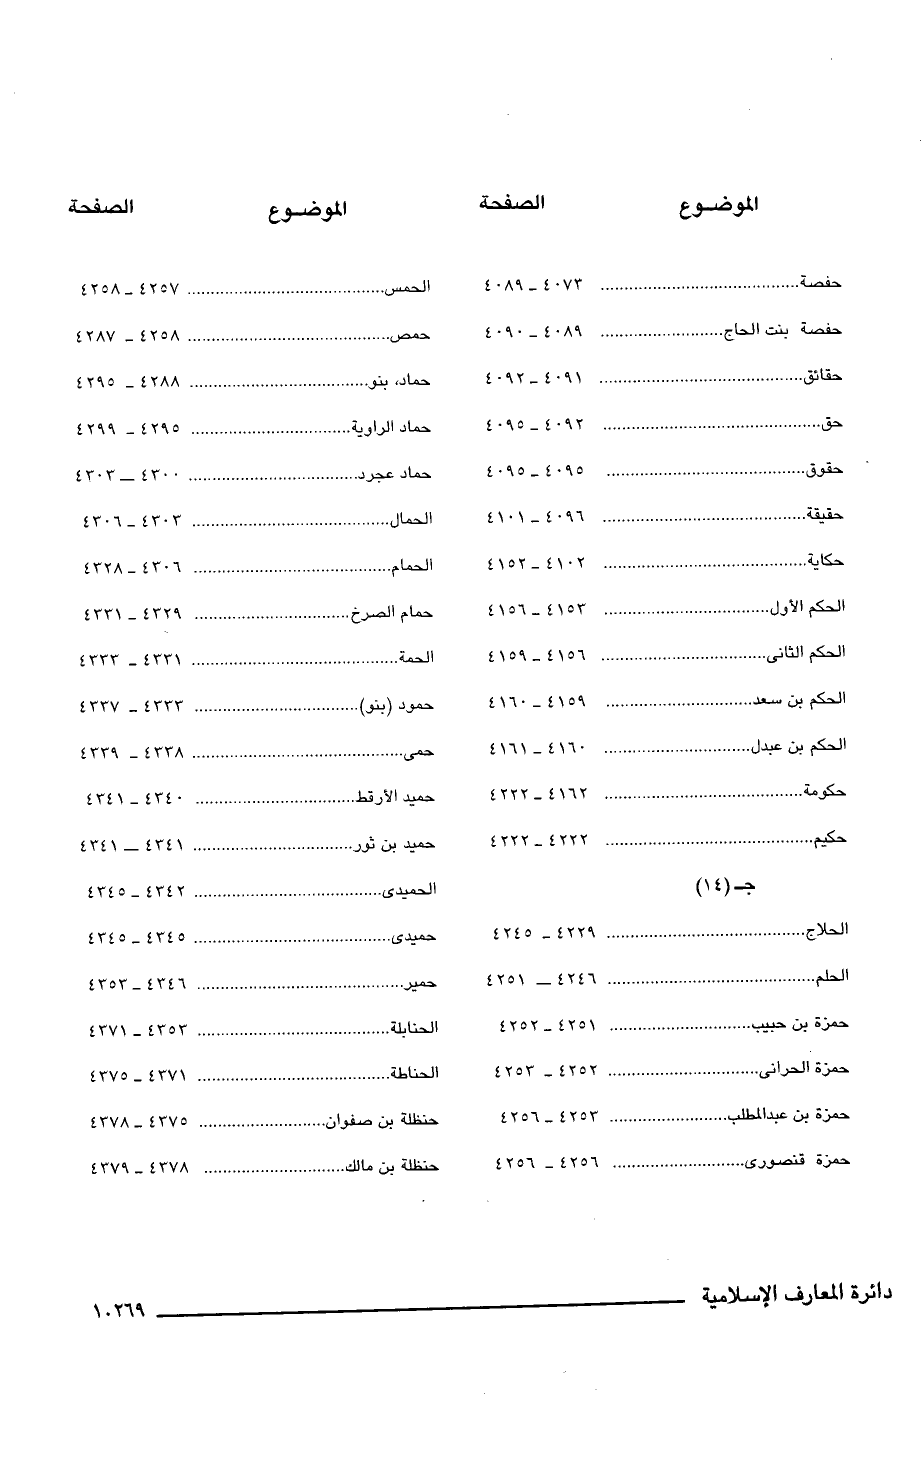 الموضوع الصفحة
حفصة ٤٠٧٣ ـ ٤٠٨٩
حفصة بنت الحاج ٤٠٨٩ ـ ٤٠٩٠
حقائق ٤٠٩١ ـ ٤٠٩٢
حق ٤٠٩٢ ـ ٤٠٩٥
حقوق ٤٠٩٥ ـ ٤٠٩٥
حقيقة ٤٠٩٦ ـ ٤١٠١
حكاية ٤١٠٢ ـ ٤١٥٢
الحكم الأول ٤١٥٣ ـ ٤١٥٦
الحكم الثانى ٤١٥٦ ـ ٤١٥٩
الحكم بن سعد ٤١٥٩ ـ ٤١٦٠
الحكم بن عبدل ٤١٦٠ ـ ٤١٦١
حكومة ٤١٦٢ ـ ٤٢٢٢
حكيم ٤٢٢٢ ـ ٤٢٢٢
جـ (١٤)
الحلاج ٤٢٢٩ ـ ٤٢٤٥
الحلم ٤٢٤٦ ـ ٤٢٥١
حمزة بن حبيب ٤٢٥١ ـ ٤٢٥٢
حمزة الحرانى ٤٢٥٢ ـ ٤٢٥٣
حمزة بن عبدالمطلب ٤٢٥٣ ـ ٤٢٥٦
حمزة قنصورى ٤٢٥٦ ـ ٤٢٥٦
الموضوع الصفحة
الحمس ٤٢٥٧ ـ ٤٢٥٨
حمص ٤٢٥٨ ـ ٤٢٨٧
حماد، بنو ٤٢٨٨ ـ ٤٢٩٥
حماد الراوية ٤٢٩٥ ـ ٤٢٩٩
حماد عجرد ٤٣٠٠ ـ ٤٣٠٣
الحمال ٤٣٠٣ ـ ٤٣٠٦
الحمام ٤٣٠٦ ـ ٤٣٢٨
حمام الصرخ ٤٣٢٩ ـ ٤٣٣١
الحمة ٤٣٣١ ـ ٤٣٣٣
حمود (بنو) ٤٣٣٣ ـ ٤٣٣٧
حمى ٤٣٣٨ ـ ٤٣٣٩
حميد الأرقط ٤٣٤٠ ـ ٤٣٤١
حميد بن ثور ٤٣٤١ ـ ٤٣٤١
الحميدى ٤٣٤٢ ـ ٤٣٤٥
حميدى ٤٣٤٥ ـ ٤٣٤٥
حمير ٤٣٤٦ ـ ٤٣٥٣
الحنابلة ٤٣٥٣ ـ ٤٣٧١
الحناطة ٤٣٧١ ـ ٤٣٧٥
حنظلة بن صفوان ٤٣٧٥ ـ ٤٣٧٨
حنظلة بن مالك ٤٣٧٨ ـ ٤٣٧٩
دائرة المعارف الإسلامية ١٠٢٦٩